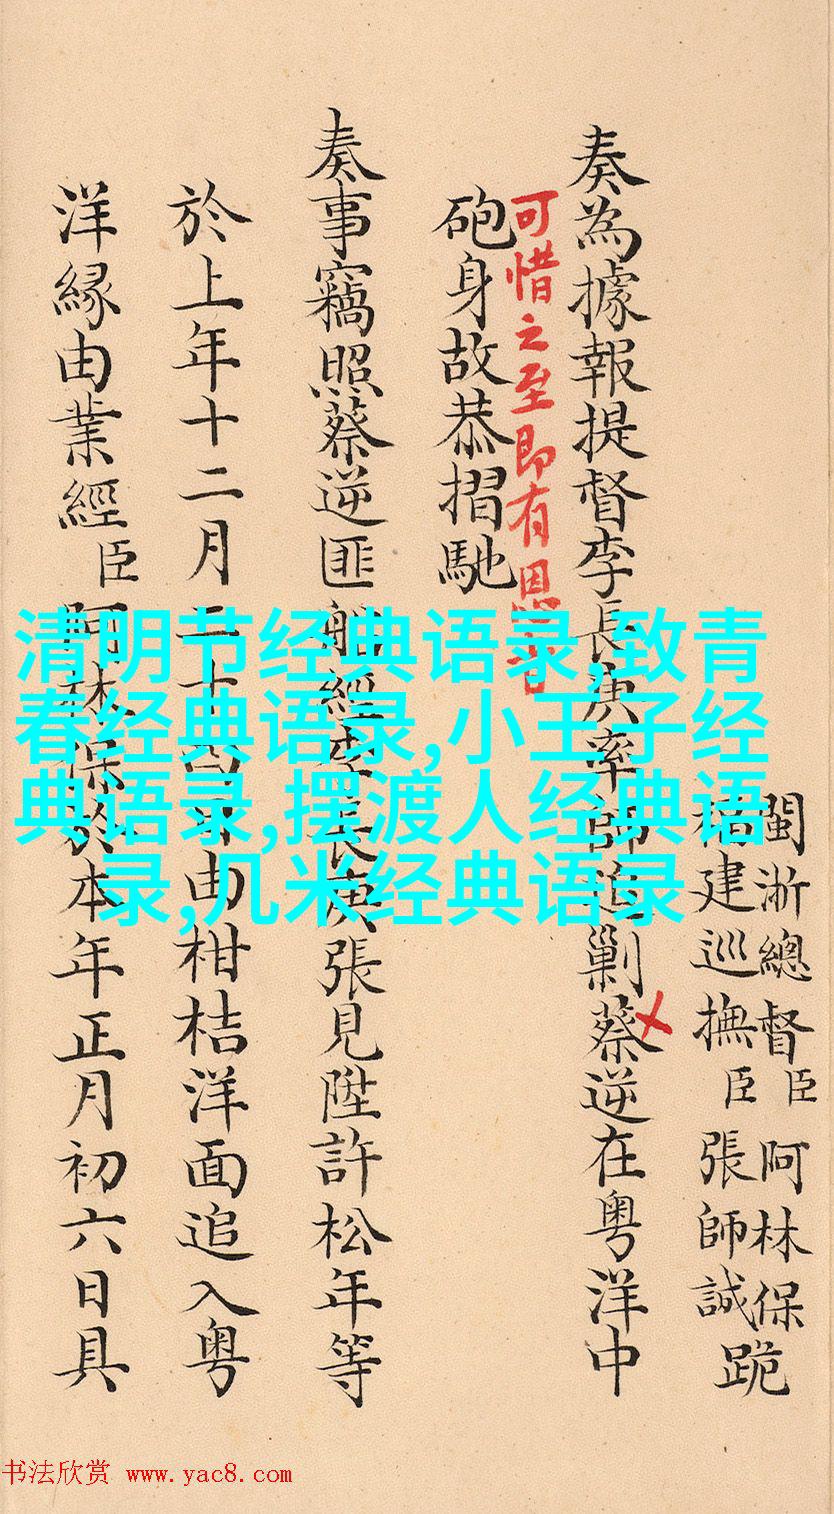 閩浙總督臣阿林保
福建巡撫臣張師誠跪
奏為據報提督李長庚率師追剿蔡逆在粵洋中
可惜之至即有恩旨
砲身故恭摺馳
奏事竊照蔡逆匪船經李長庚張見陞許松年等
於上年十二月二十四日由柑桔洋面追入粵
洋緣由業經臣阿林保於本年正月初六日具
清明节经典语录,致青
春经典语录,小王子经
典语录,摆渡人经典语
录,几米经典语录
书法欣赏 www.yac8.com